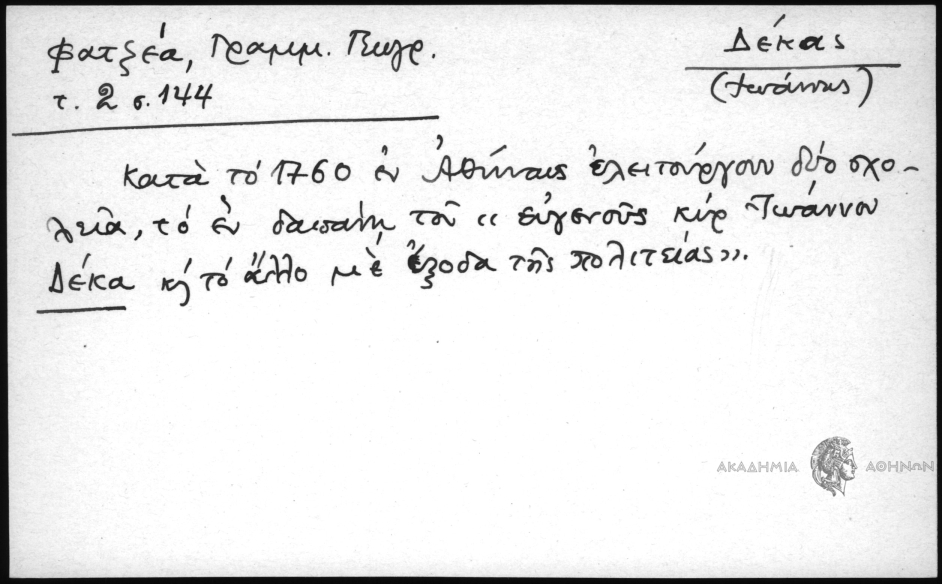 Φατζέα, Γραμμ. Γεωγρ.
τ. 2 σ. 144
Δέκας
(Ἰωάννης)
Κατὰ τό 1760 ἐν Ἀθήναις ἐλειτούργουν δύο σχο-
λεῖα, τό ἐν δαπάνῃ τοῦ «εὐγενοῦς κύρ Ἰωάννου
Δέκα κή τό ἄλλο μέ ἔξοδα τῆς πολιτείας».
ΑΚΑΔΗΜΙΑ ΑΘΗΝΩΝ